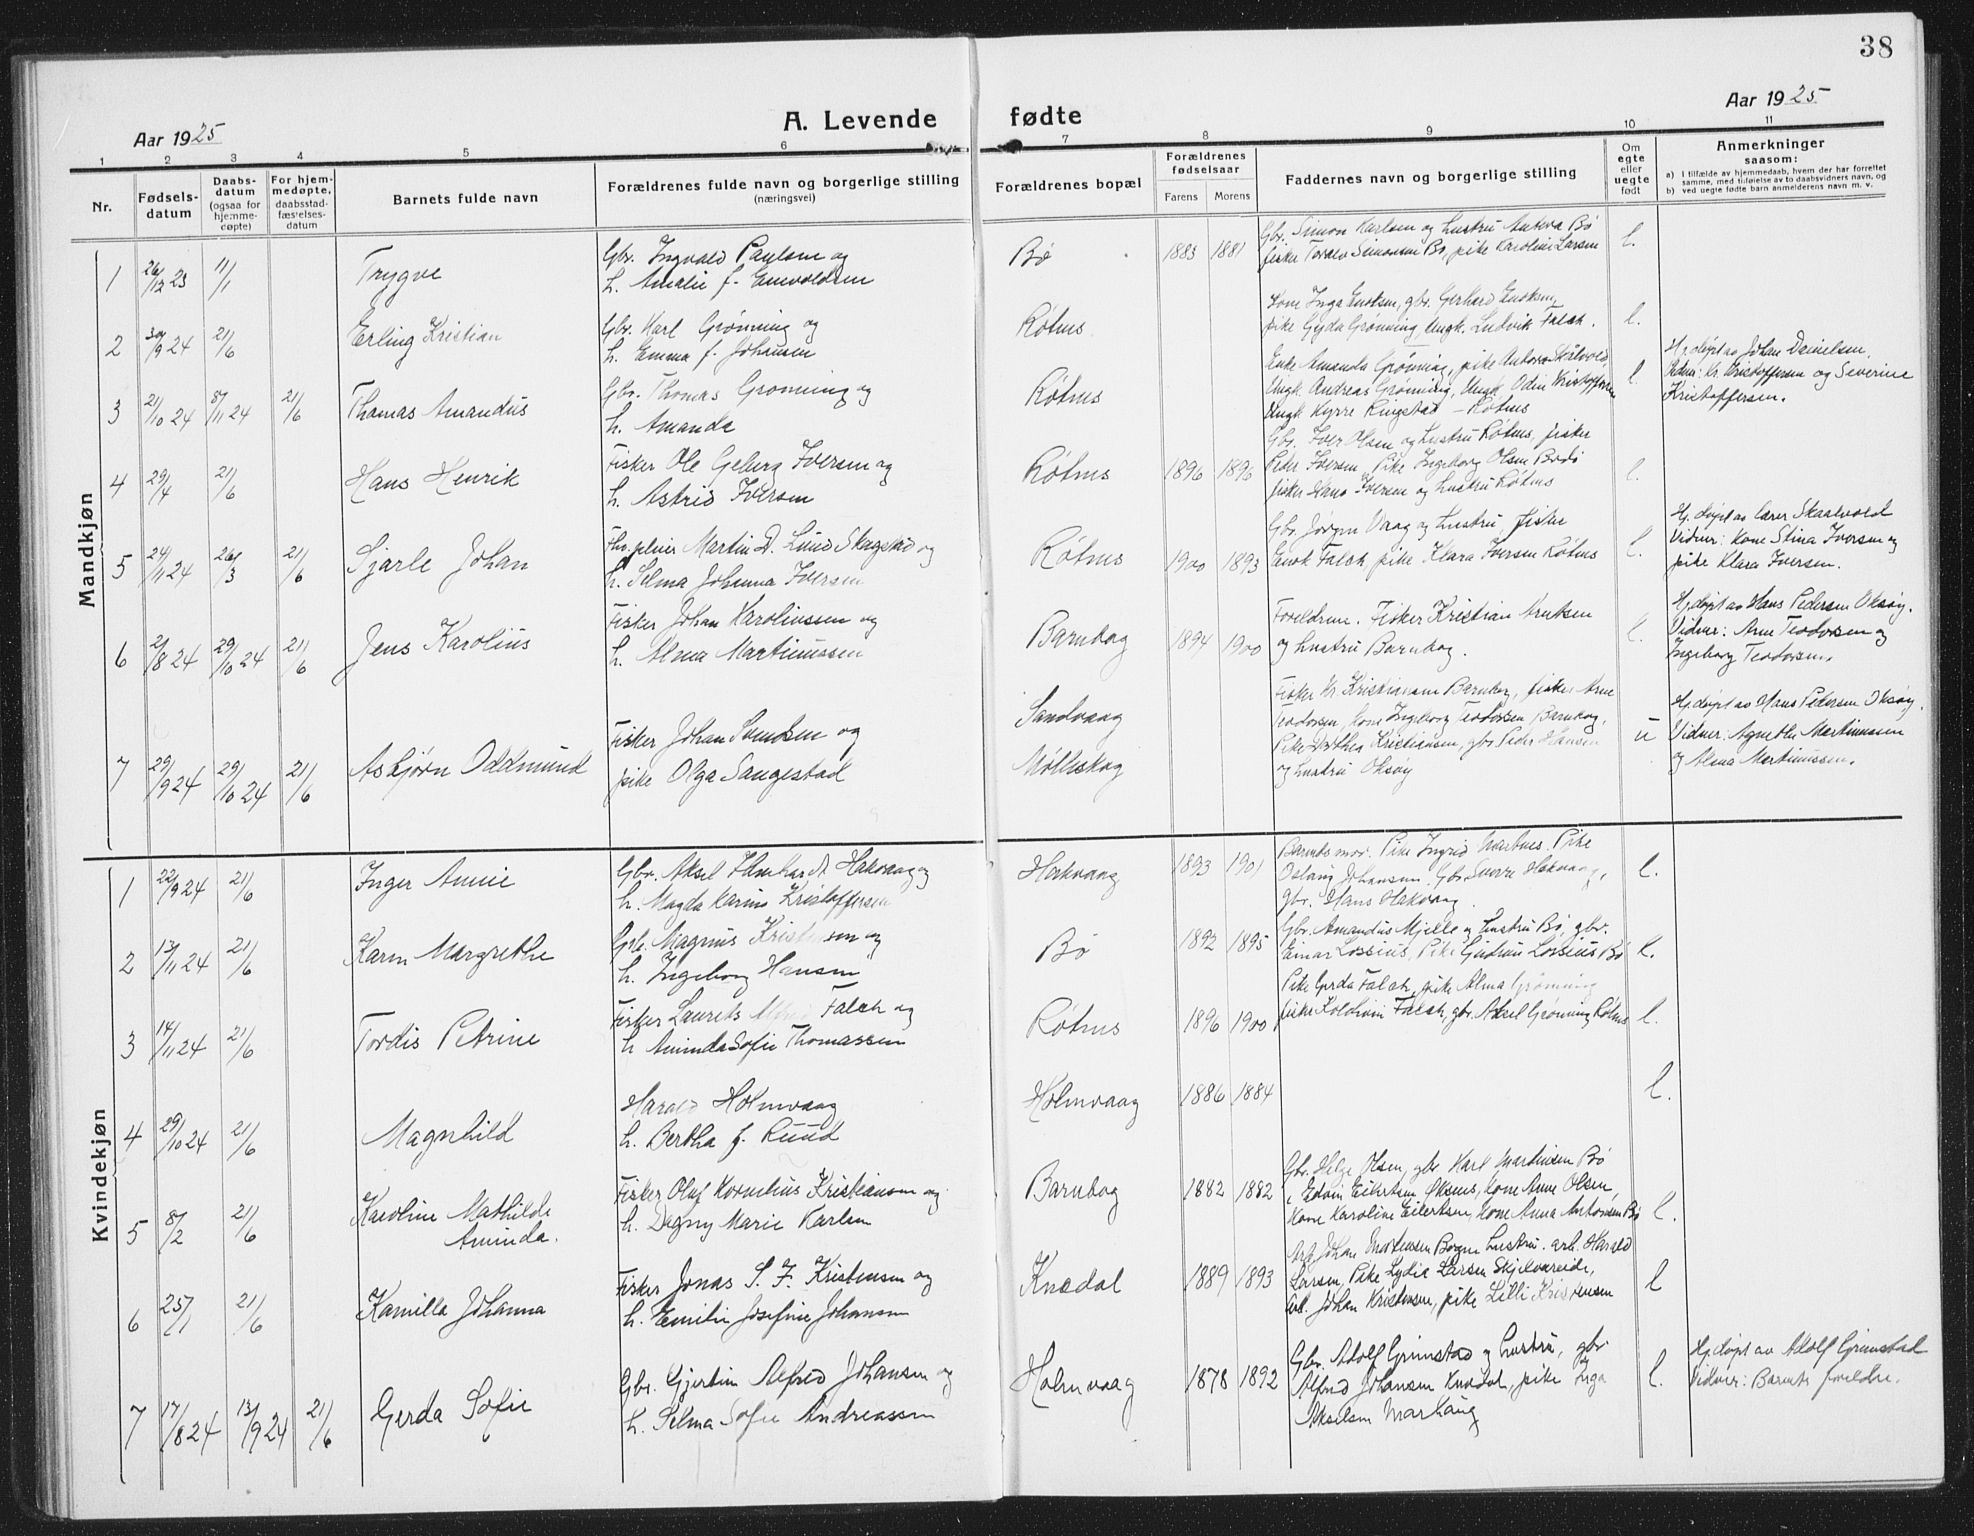 38
Aar 1925
A. Levende fødte
Aar 1925
1 2 3 4 5 6 7 8 9 10 11
Nr.
Fødsels-
datum
Daabs-
datum
(ogsaa for
hjemme-
døpte)
For hjem-
medøpte,
daabsstad-
fæstelses-
datum
Barnets fulde navn
Forældrenes fulde navn og borgerlige stilling
(næringsvei)
Forældrenes bopæl
Forældrenes
fødselsaar
Farens Morens
Faddernes navn og borgerlige stilling
Om
egte
eller
uegte
født
Anmerkninger
saasom:
a) I tilfælde av hjemmedaab, hvem der har forrettet
samme, med tilføielse av to daabsvidners navn, og
b) ved uegte fødte barn anmelderens navn m. v.
Mandkjøn
1 26/12 23 11/1 Trygve
Gbr. Ingvald Paulsen og
h. Amalie f. Enevoldsen
Bø 1883 1881
Gbr. Simon Karlsen og hustru Antora Bø
fisker Toralv Simonsen Bø, pike Karoline Larsen
l.
2 30/9 24 21/6 Erling Kristian
Gbr. Karl Grønning og
h. Emma f. Johansen
Røtnes
Kone Inga Enoksen, gbr. Gerhard Enoksen,
pike Gyda Grønning, Ungk. Ludvik Falch.
l.
3 21/10 24 8/11 24 21/6 Thomas Amandus
Gbr. Thomas Grønning og
h. Amanda
Røtnes
Enke Amanda Grønning, pike Antora Skålvold,
Ungk. Andreas Grønning, Ungk. Odin Kristoffersen
Ungk. Kyrre Ringstad - Røtnes
l.
Hj. døpt av Johan Danielsen.
Vidner: Kr. Kristoffersen og Severine
Kristoffersen.
4 29/4 21/6 Hans Henrik
Fisker Ole Geberg Iversen og
h. Astrid Iversen
Røtnes 1896 1896
Gbr. Iver Olsen og hustru Røtnes, fisker
Peder Iversen, Pike Ingeborg Olsen Bodø
fisker Hans Iversen og hustru Røtnes
l.
5 24/11 24 26/3 21/6 Sjarle Johan
Martin D. Lund Skagstad og
h. Selma Johanna Iversen
Røtnes 1900 1893
Gbr. Jørgen Vaag og hustru, fisker
Enok Falch, pike Klara Iversen Røtnes
l.
Hj. døpt av lærer Skaalvold
Vidner: Kone Stina Iversen og
pike Klara Iversen.
6 21/8 24 29/10 24 21/6 Jens Karolius
Fisker Johan Karoliussen og
h. Alma Martinussen
Barnkog 1894 1900
Foreldrene. Fisker Kristian Arntsen
og hustru Barnkog.
l.
Hj. døpt av Hans Pedersen Oksøy.
Vidner: Arne Teodorsen og
Ingeborg Teodorsen.
7 29/9 24 29/10 24 21/6 Asbjørn Oddmund
Fisker Johan Svendsen og
pike Olga Sangestad
Sandvaag
Møllskog
Fisker Kr. Kristiansen Barnkog, fisker Arne
Teodorsen, kone Ingeborg Teodorsen Barnkog,
Pike Dorthea Kristiansen, gbr. Peder Hansen
og hustru Oksøy
u
Hj. døpt av Hans Pedersen Oksøy.
Vidner: Agnethe Martinussen
og Alma Martinussen.
Kvindekjøn
1 22/9 24 21/6 Inger Annie
Gbr. Aksel Edvardt Hakvaag og
h. Magda Karine Kristoffersen
Hakvaag 1893 1901
Barnets mor. Pike Ingrid Marhus. Pike
Oslaug Johansen. Gbr. Sverre Hakvaag,
gbr. Hans Hakvaag.
l.
2 13/11 24 21/6 Karen Margrethe
Gbr. Magnus Kristensen og
h. Ingeborg Hansen
Bø 1892 1895
Gbr. Amandus Mjelle og hustru Bø, gbr.
Einar Lossius, Pike Gudrun Lossius Bø
l.
3 14/11 24 21/6 Tordis Petrine
Fisker Laurits Falch og
h. Aminda Sofie Thomassen
Røtnes 1896 1900
Pike Gerda Falch, pike Alma Grønning
fisker Koldevin Falch, gbr. Aksel Grønning Røtnes
l.
4 29/10 24 21/6 Magnhild
Harald Holmvaag
h. Bertha f. Ruud
Holmvaag 1886 1884
l.
5 8/2 21/6 Karoline Mathilde
Aminda.
Fisker Oluf Kornelius Kristiansen og
h. Dagny Marie Karlsen
Barnkog 1882 1882
Gbr. Helge Olsen, gbr. Karl Martinsen Bø
, Edvin Eilertsen Oksnes, kone Anne Olsen,
Kone Karoline Eilertsen, kone Anna Antonsen Bø
l.
6 25/1 21/6 Kamilla Johanna
Fisker Jonas S. F. Kristensen og
h. Emilie Josefine Johansen
Knædal 1889 1893
Arb. Johan Mortensen Bogen hustru. arb. Harald
Larsen, Pike Lydia Larsen Skjelvareide,
Arb. Johan Kristensen, pike Lilli Kristensen
l
7 17/8 24 13/9 24 21/6 Gerda Sofie
Gbr. Gjertin Alfred Johansen og
h. Selma Sofie Andreassen
Holmvaag 1878 1892
Gbr. Adolf Grimstad og hustru, gbr
Alfred Johansen Knædal, pike Inga
Akselsen Marhaug
l.
Hj. døpt av Adolf Grimstad
Vidner: Barnets foreldre.